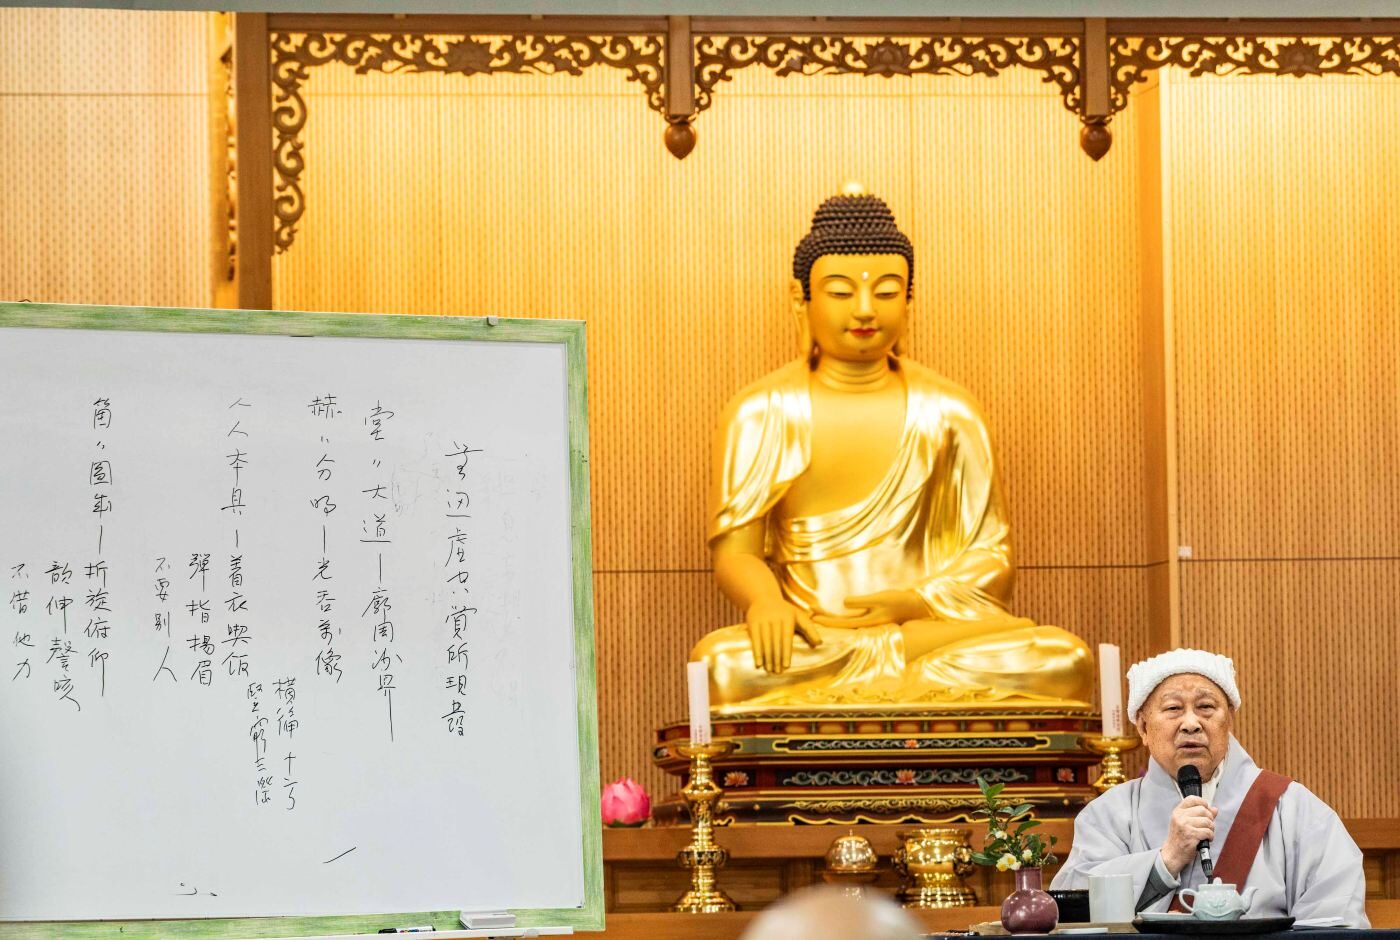 無边虚空覚所現發
堂〃大道―廓周沙界
赫〃分明―光吞萬像
橫徧十方
竪窮三際
人人本具―着衣喫飯
彈指揚眉
不要別人
箇〃圓成―折旋俯仰
伸謦咳
不借他力